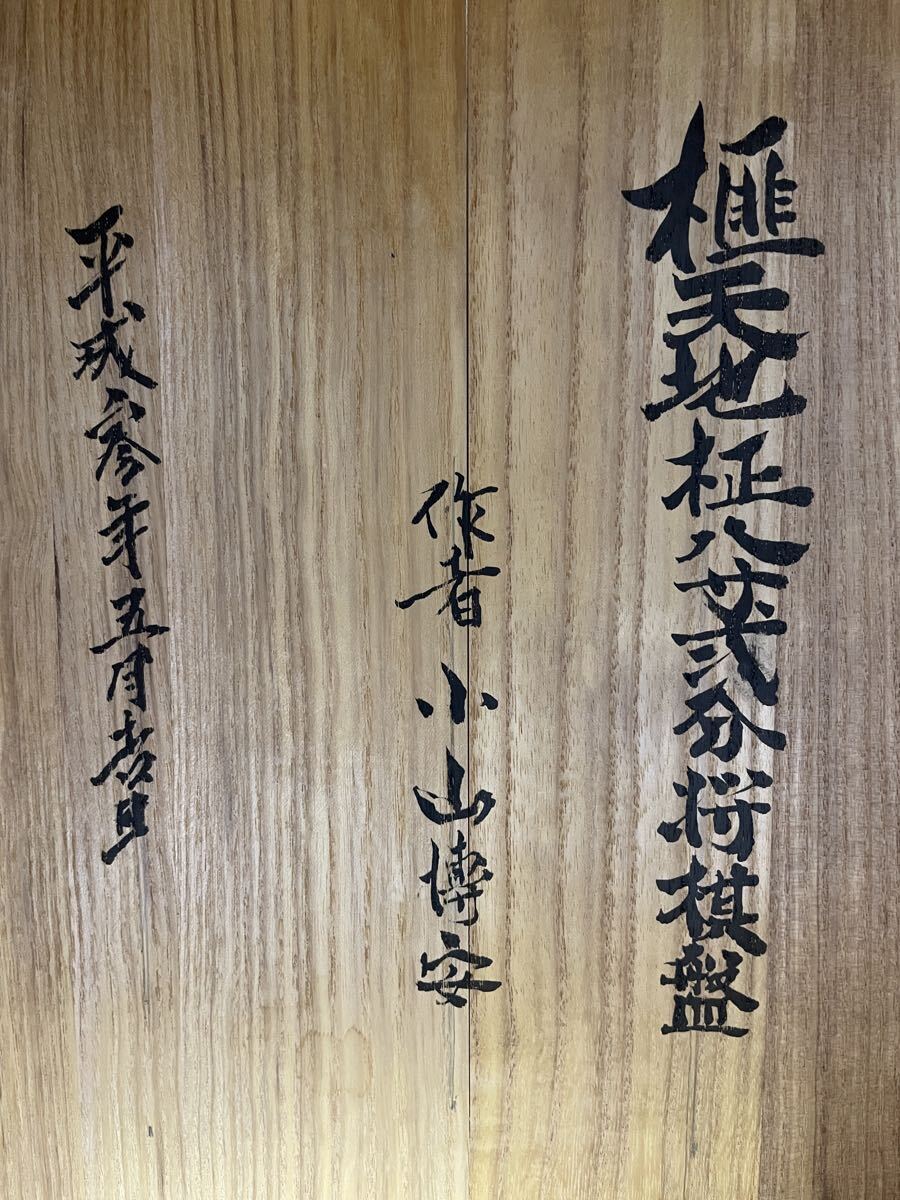 榧天地柾八寸弐分将棋盤
作者 小山博安
平成参年五月吉日